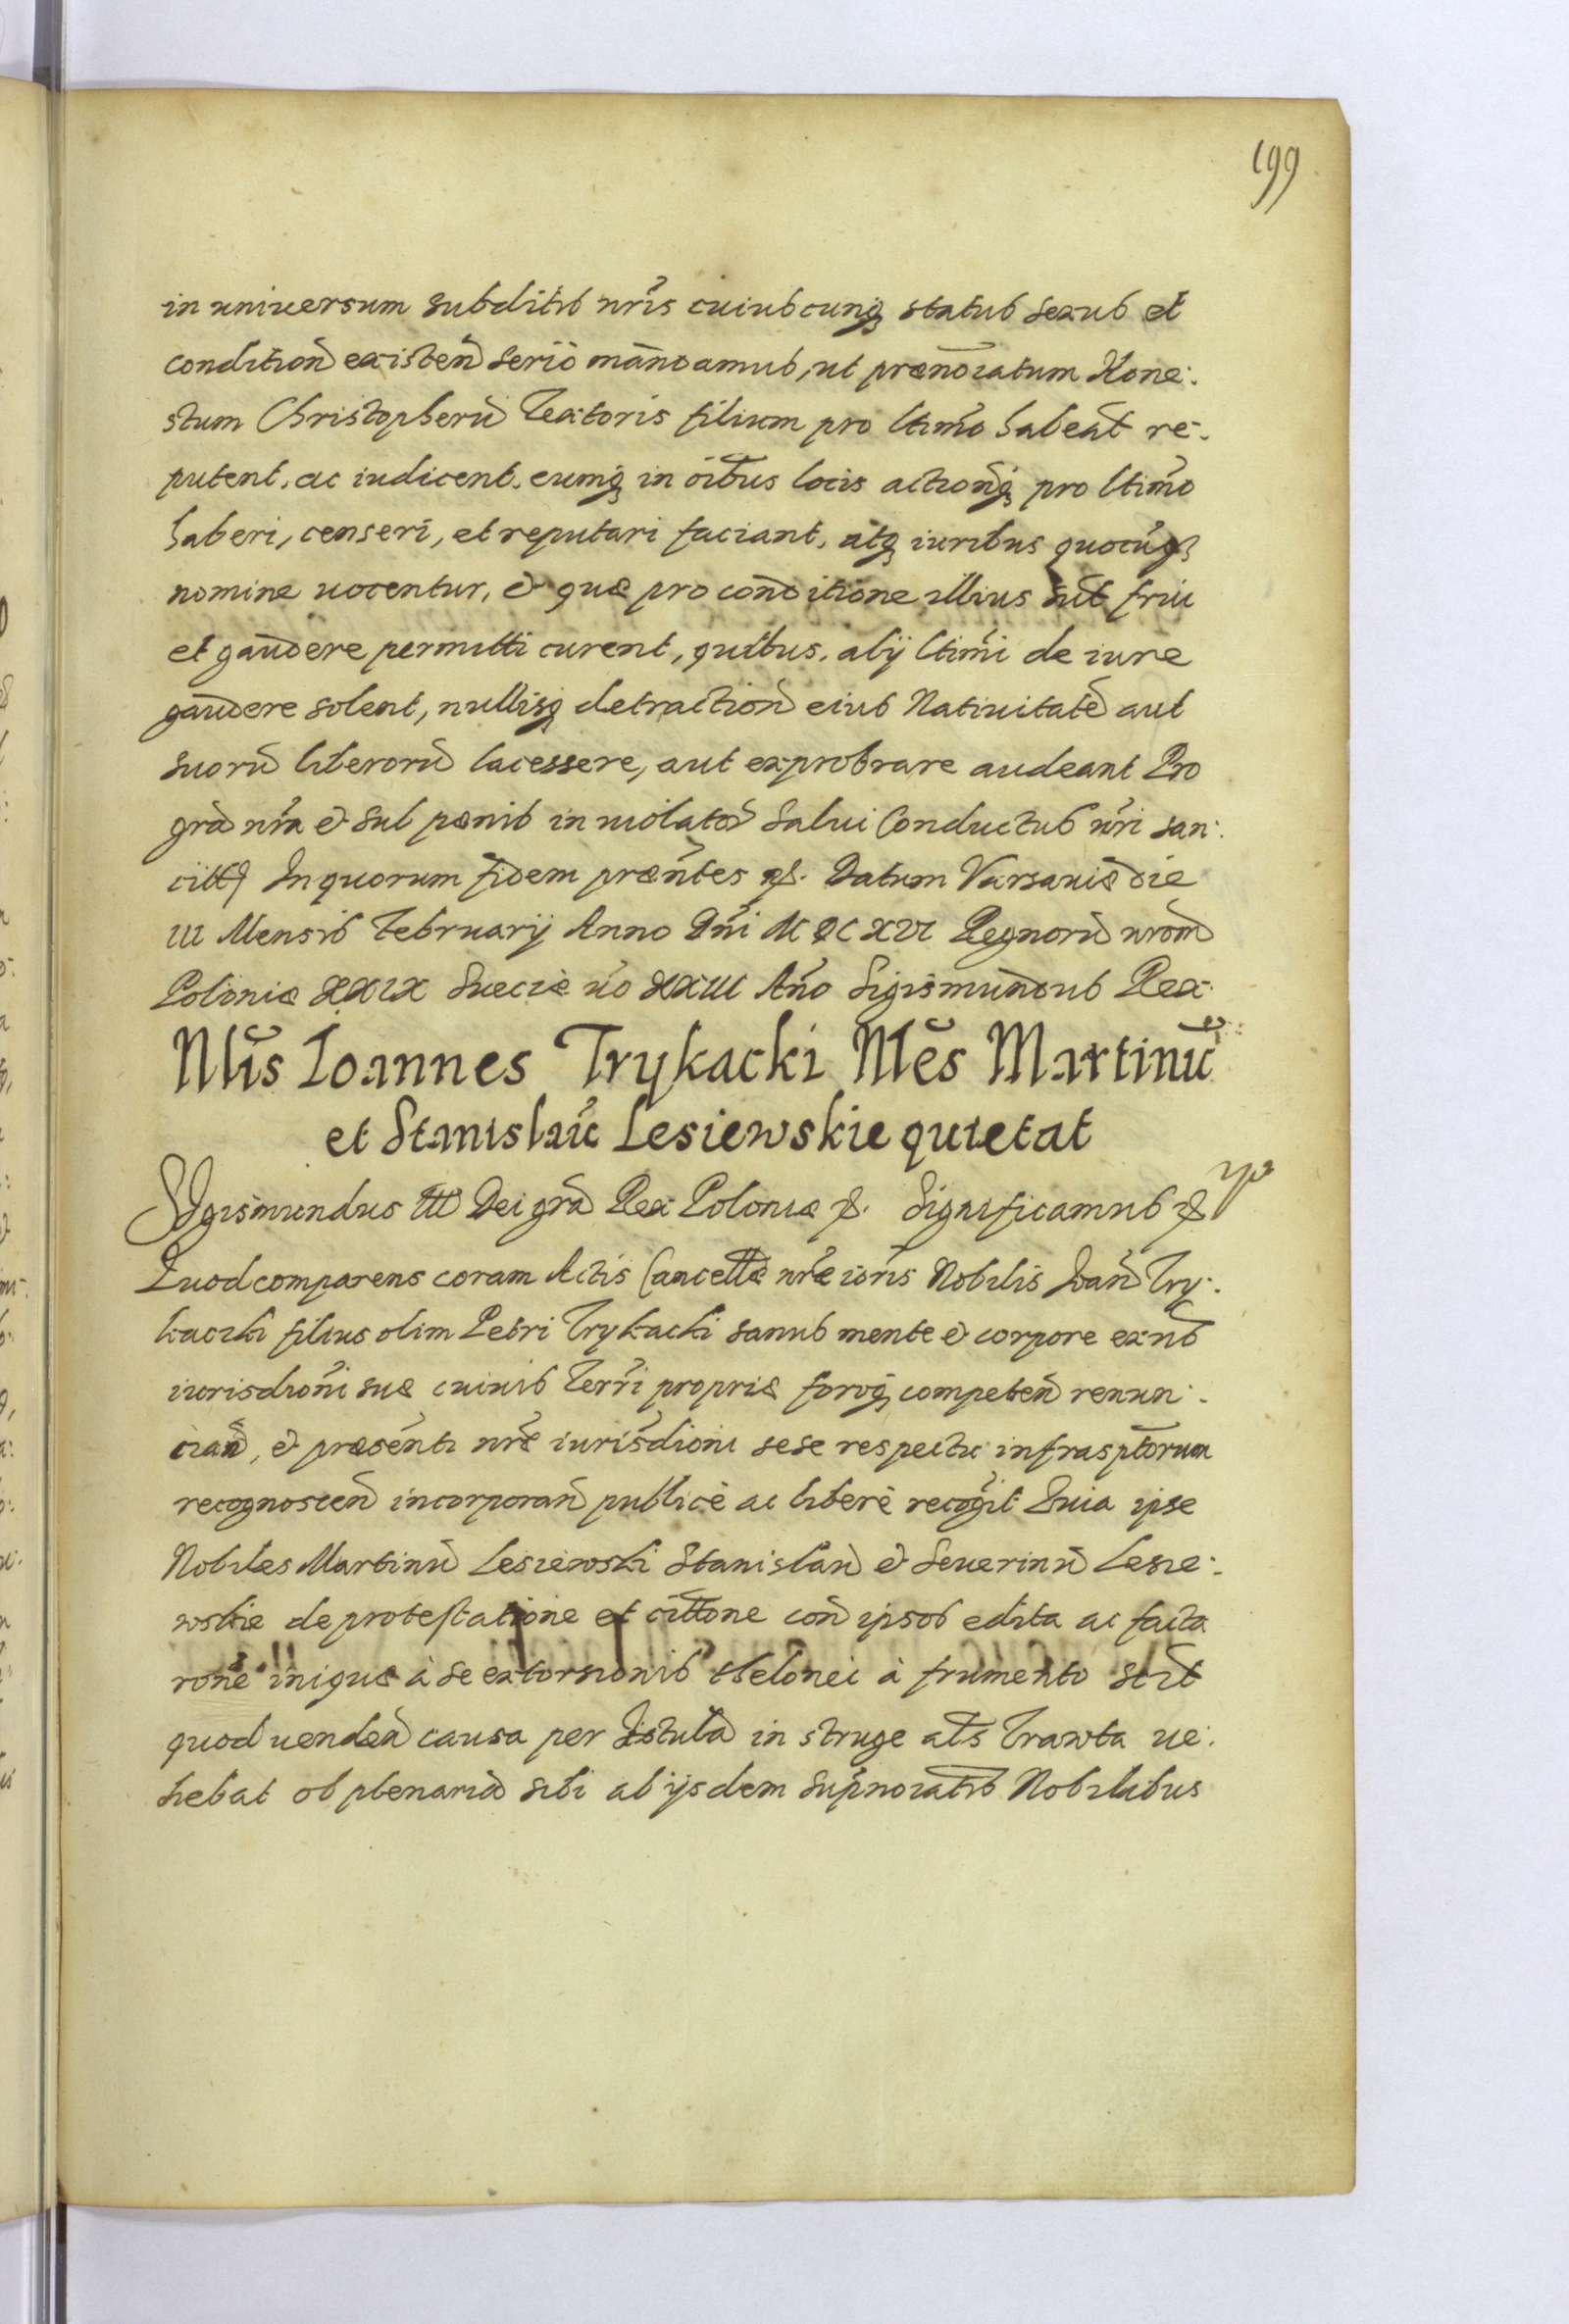 199
in uniuersum subditis nr̃is cuiuscunq; status sexus et
condition̄ existen̄ serio mandamus, ut prænoĩatum Hone:
stum Christopherū Textoris filium pro ltimo habeãt re:
putent, ac iudicent, eumq; in oĩbus locis actionq; pro ltimo
haberi, censeri, et reputari faciant, atq; iuribus quocūq;
nomine uocentur, & quæ pro conditione illius sũt frui
et gaudere permitti curent, quibus, alij ltimi de iure
gaudere solent, nullisq; detraction̄ eius Natiuitatē aut
suorū liberorū lacessere, aut exprobrare audeant Pro
grã nr̃a & sub pænis in uiolator̄ salui Conductus nr̃i san:
citt In quorum fidem præñtes &. Datum Varsauiæ die
III Mensis Februarij Anno Dñi MDCXVI Regnorū nrõrũ
Poloniæ XXIX Sueciæ uõ XXIII Año Sigismundus Rex
Nblis Ioannes Trykacki Nbles Martinū
et Stanislaũ Lesiewskie quietat
Sigismundus III Dei grã Rex Poloniæ &. Significamus &
Quod comparens coram Actis Cancellæ nr̃æ ioris Nobilis Ioan̄ Try:
kacki filius olim Petri Trykacki sanus mente & corpore exñs
iurisdioñi suæ cuiuis Terr̃i propriæ foroq; competen̄ renun:
cian̄, & præsenti nr̃æ iurisdioni sese respectu infrasptorum
recognoscen̄ incorporan̄ publicè ac liberè recogit Quia ipse
Nobiles Martinū Lesiewski Stanislaū & Seuerinū Lesie:
wskie de protestatione et cittone con̄ ipsos edita ac facta
rone iniquæ à se extorsionis thelonei à frumento scit
quod uenden̄ causa per Istulā in struge als Trawta ue:
hebat ob plenariā sibi ab ijsdem supnoĩatis Nobilibus